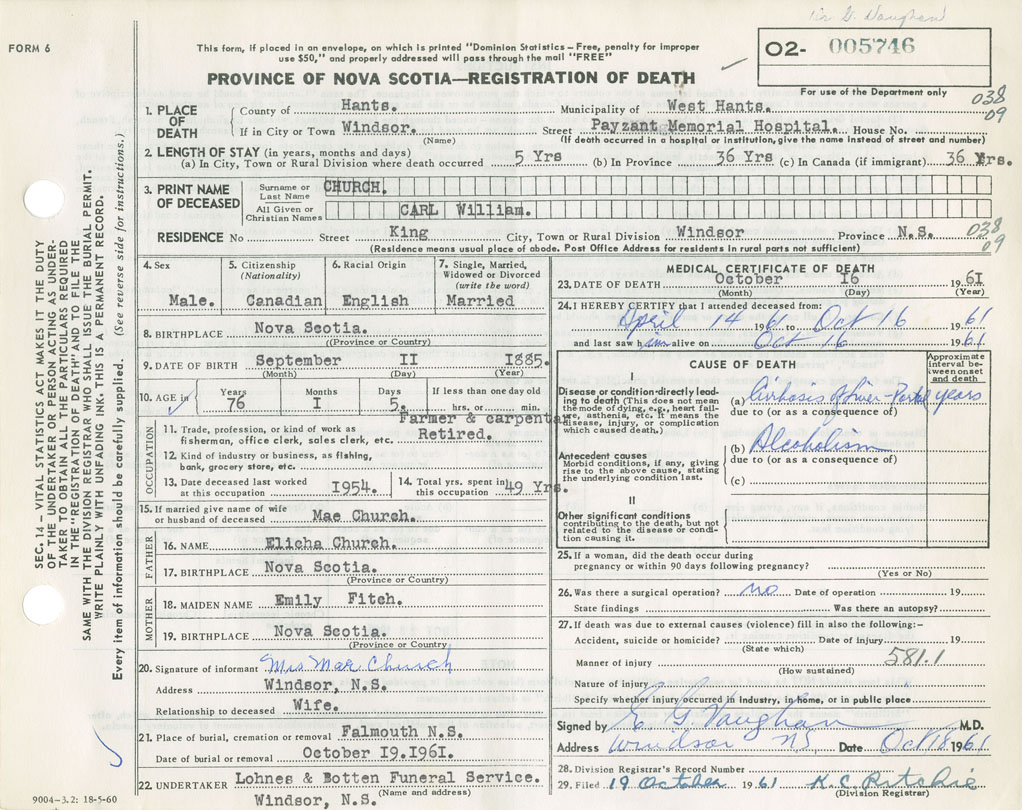 Dr G. Vaughan
FORM 6
This form, if placed in an envelope, on which is printed "Dominion Statistics – Free, penalty for improper
use $50," and properly addressed will pass through the mail "FREE"
02- 005746
PROVINCE OF NOVA SCOTIA—REGISTRATION OF DEATH
For use of the Department only
038
09
1. PLACE OF DEATH
County of Hants. Municipality of West Hants.
If in City or Town Windsor. Street Payzant Memorial Hospital. House No.
(Name) (If death occurred in a hospital or institution, give the name instead of street and number)
2. LENGTH OF STAY (in years, months and days)
(a) In City, Town or Rural Division where death occurred 5 Yrs (b) In Province 36 Yrs (c) In Canada (if immigrant) 36 Yrs.
3. PRINT NAME OF DECEASED
Surname or Last Name CHURCH.
All Given or Christian Names CARL William.
RESIDENCE No Street King City, Town or Rural Division Windsor Province N.S. 038
09
(Residence means usual place of abode. Post Office Address for residents in rural parts not sufficient)
4. Sex
Male.
5. Citizenship
(Nationality)
Canadian
6. Racial Origin
English
7. Single, Married,
Widowed or Divorced
(write the word)
Married
8. BIRTHPLACE Nova Scotia.
((Province or Country)
9. DATE OF BIRTH September II I885.
(Month) (Day) (Year)
10. AGE in Years Months Days If less than one day old
76 I 5. hrs. or min.
OCCUPATION
Farmer & carpentar
11. Trade, profession, or kind of work as Retired.
fisherman, office clerk, sales clerk, etc.
12. Kind of industry or business, as fishing,
bank, grocery store, etc.
13. Date deceased last worked
at this occupation I954.
14. Total yrs. spent in
this occupation 49 Yrs.
15. If married give name of wife
or husband of deceased Mae Church.
FATHER
16. NAME Elicha Church.
17. BIRTHPLACE Nova Scotia.
(Province or Country)
MOTHER
18. MAIDEN NAME Emily Fitch.
19. BIRTHPLACE Nova Scotia.
(Province or Country
20. Signature of informant Mrs Mae Church
Address Windsor, N.S.
Relationship to deceased Wife.
21. Place of burial, cremation or removal Falmouth N.S.
Date of burial or removal October I9.I96I.
22. UNDERTAKER Lohnes & Botten Funeral Service.
(Name and address)
Windsor, N.S.
MEDICAL CERTIFICATE OF DEATH
23. DATE OF DEATH October I6 1961
(Month) (Day) (Year)
24. I HEREBY CERTIFY that I attended deceased from:
April 14 1961 to Oct 16 1961
and last saw him alive on Oct 16 1961
CAUSE OF DEATH
Approximate
interval be-
tween onset
and death
I
Disease or condition directly lead-
ing to death (This does not mean
the mode of dying, e.g., heart fail-
ure, asthenia, etc. It means the
disease, injury, or complication
which caused death.)
(a) Cirrhosis of Liver - Portal years
due to (or as a consequence of)
Antecedent causes
Morbid conditions, if any, giving
rise to the above cause, stating
the underlying condition last.
(b) Alcoholism
due to (or as a consequence of)
(c)
II
Other significant conditions
contributing to the death, but not
related to the disease or condi-
tion causing it.
25. If a woman, did the death occur during
pregnancy or within 90 days following pregnancy?
(Yes or No)
26. Was there a surgical operation? no Date of operation 19
State findings Was there an autopsy?
27. If death was due to external causes (violence) fill in also the following:–
Accident, suicide or homicide? Date of injury 19
(State which)
581.1
Manner of injury
(How sustained)
Nature of injury
Specify whether injury occurred in industry, in home, or in public place
Signed by E. G. Vaughan M.D.
Address Windsor NS Date Oct 18 1961
28. Division Registrar's Record Number
29. Filed 19 October 1961 K. C. Ritchie
(Division Registrar)
SEC. 14 – VITAL STATISTICS ACT MAKES IT THE DUTY
OF THE UNDERTAKER OR PERSON ACTING AS UNDER-
TAKER TO OBTAIN ALL THE PARTICULARS REQUIRED
IN THE "REGISTRATION OF DEATH" AND TO FILE THE
SAME WITH THE DIVISION REGISTRAR WHO SHALL ISSUE THE BURIAL PERMIT.
WRITE PLAINLY WITH UNFADING INK. THIS IS A PERMANENT RECORD.
Every item of information should be carefully supplied. (See reverse side for instructions.)
9004–3.2: 18-5-60